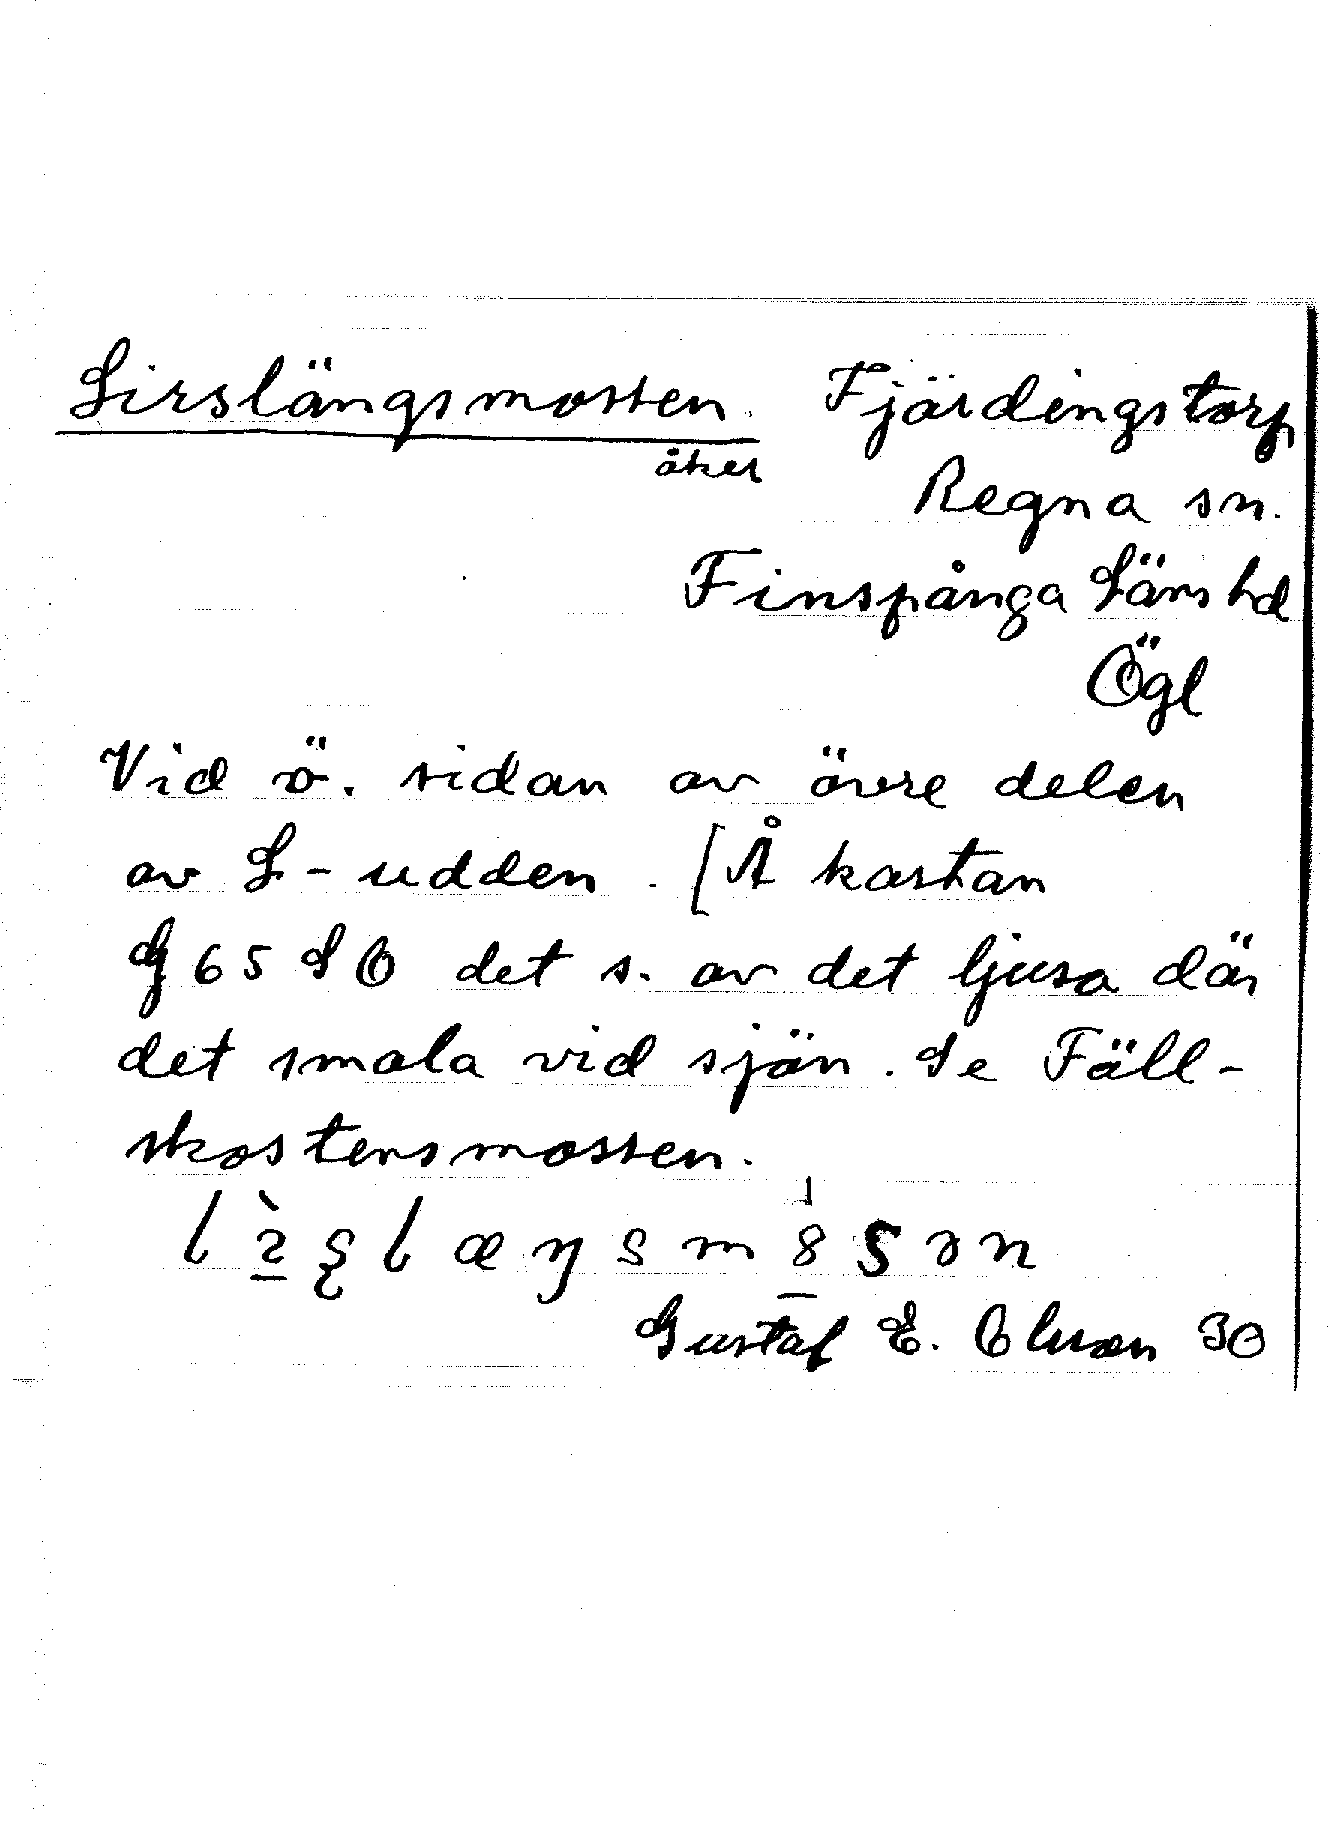 Lirslängsmossen. Fjärdingstorp
åker
Regna sn.
Finspånga Läns hd
Ögl
Vid ö. sidan av övre delen
av L-udden. [Å kartan
G 65 SO det s. av det ljusa där
det smala vid sjön. Se Fäll-
skostensmossen.
Gustaf E. Olsson 30